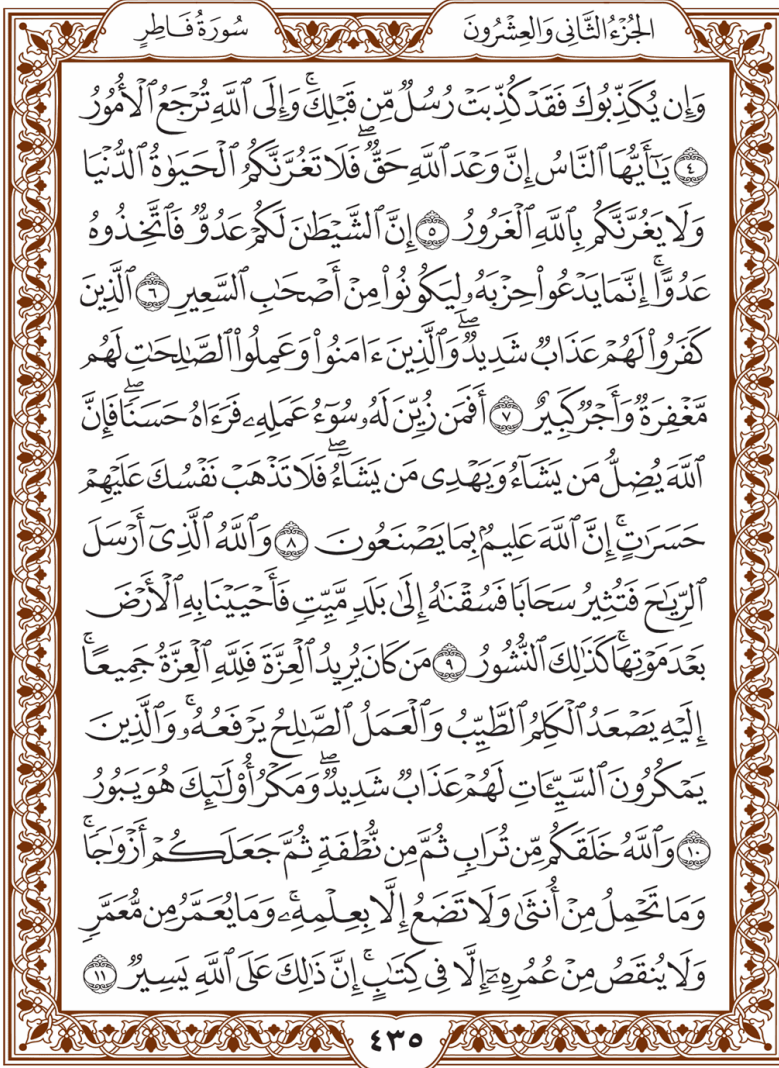 الجُزْءُ الثَّانِي وَالعِشْرُونَ
سُورَةُ فَاطِرٍ
وَإِن يُكَذِّبُوكَ فَقَدۡ كُذِّبَتۡ رُسُلٞ مِّن قَبۡلِكَۚ وَإِلَى ٱللَّهِ تُرۡجَعُ ٱلۡأُمُورُ
٤ يَٰٓأَيُّهَا ٱلنَّاسُ إِنَّ وَعۡدَ ٱللَّهِ حَقّٞۖ فَلَا تَغُرَّنَّكُمُ ٱلۡحَيَوٰةُ ٱلدُّنۡيَا
وَلَا يَغُرَّنَّكُم بِٱللَّهِ ٱلۡغَرُورُ ٥ إِنَّ ٱلشَّيۡطَٰنَ لَكُمۡ عَدُوّٞ فَٱتَّخِذُوهُ
عَدُوًّاۚ إِنَّمَا يَدۡعُواْ حِزۡبَهُۥ لِيَكُونُواْ مِنۡ أَصۡحَٰبِ ٱلسَّعِيرِ ٦ ٱلَّذِينَ
كَفَرُواْ لَهُمۡ عَذَابٞ شَدِيدٞۖ وَٱلَّذِينَ ءَامَنُواْ وَعَمِلُواْ ٱلصَّٰلِحَٰتِ لَهُم
مَّغۡفِرَةٞ وَأَجۡرٞ كَبِيرٌ ٧ أَفَمَن زُيِّنَ لَهُۥ سُوٓءُ عَمَلِهِۦ فَرَءَاهُ حَسَنٗاۖ فَإِنَّ
ٱللَّهَ يُضِلُّ مَن يَشَآءُ وَيَهۡدِي مَن يَشَآءُۖ فَلَا تَذۡهَبۡ نَفۡسُكَ عَلَيۡهِمۡ
حَسَرَٰتٍۚ إِنَّ ٱللَّهَ عَلِيمُۢ بِمَا يَصۡنَعُونَ ٨ وَٱللَّهُ ٱلَّذِيٓ أَرۡسَلَ
ٱلرِّيَٰحَ فَتُثِيرُ سَحَابٗا فَسُقۡنَٰهُ إِلَىٰ بَلَدٖ مَّيِّتٖ فَأَحۡيَيۡنَا بِهِ ٱلۡأَرۡضَ
بَعۡدَ مَوۡتِهَاۚ كَذَٰلِكَ ٱلنُّشُورُ ٩ مَن كَانَ يُرِيدُ ٱلۡعِزَّةَ فَلِلَّهِ ٱلۡعِزَّةُ جَمِيعًاۚ
إِلَيۡهِ يَصۡعَدُ ٱلۡكَلِمُ ٱلطَّيِّبُ وَٱلۡعَمَلُ ٱلصَّٰلِحُ يَرۡفَعُهُۥۚ وَٱلَّذِينَ
يَمۡكُرُونَ ٱلسَّيِّـَٔاتِ لَهُمۡ عَذَابٞ شَدِيدٞۖ وَمَكۡرُ أُوْلَٰٓئِكَ هُوَ يَبُورُ
١٠ وَٱللَّهُ خَلَقَكُم مِّن تُرَابٖ ثُمَّ مِن نُّطۡفَةٖ ثُمَّ جَعَلَكُمۡ أَزۡوَٰجٗاۚ
وَمَا تَحۡمِلُ مِنۡ أُنثَىٰ وَلَا تَضَعُ إِلَّا بِعِلۡمِهِۦۚ وَمَا يُعَمَّرُ مِن مُّعَمَّرٖ
وَلَا يُنقَصُ مِنۡ عُمُرِهِۦٓ إِلَّا فِي كِتَٰبٍۚ إِنَّ ذَٰلِكَ عَلَى ٱللَّهِ يَسِيرٞ ١١
٤٣٥